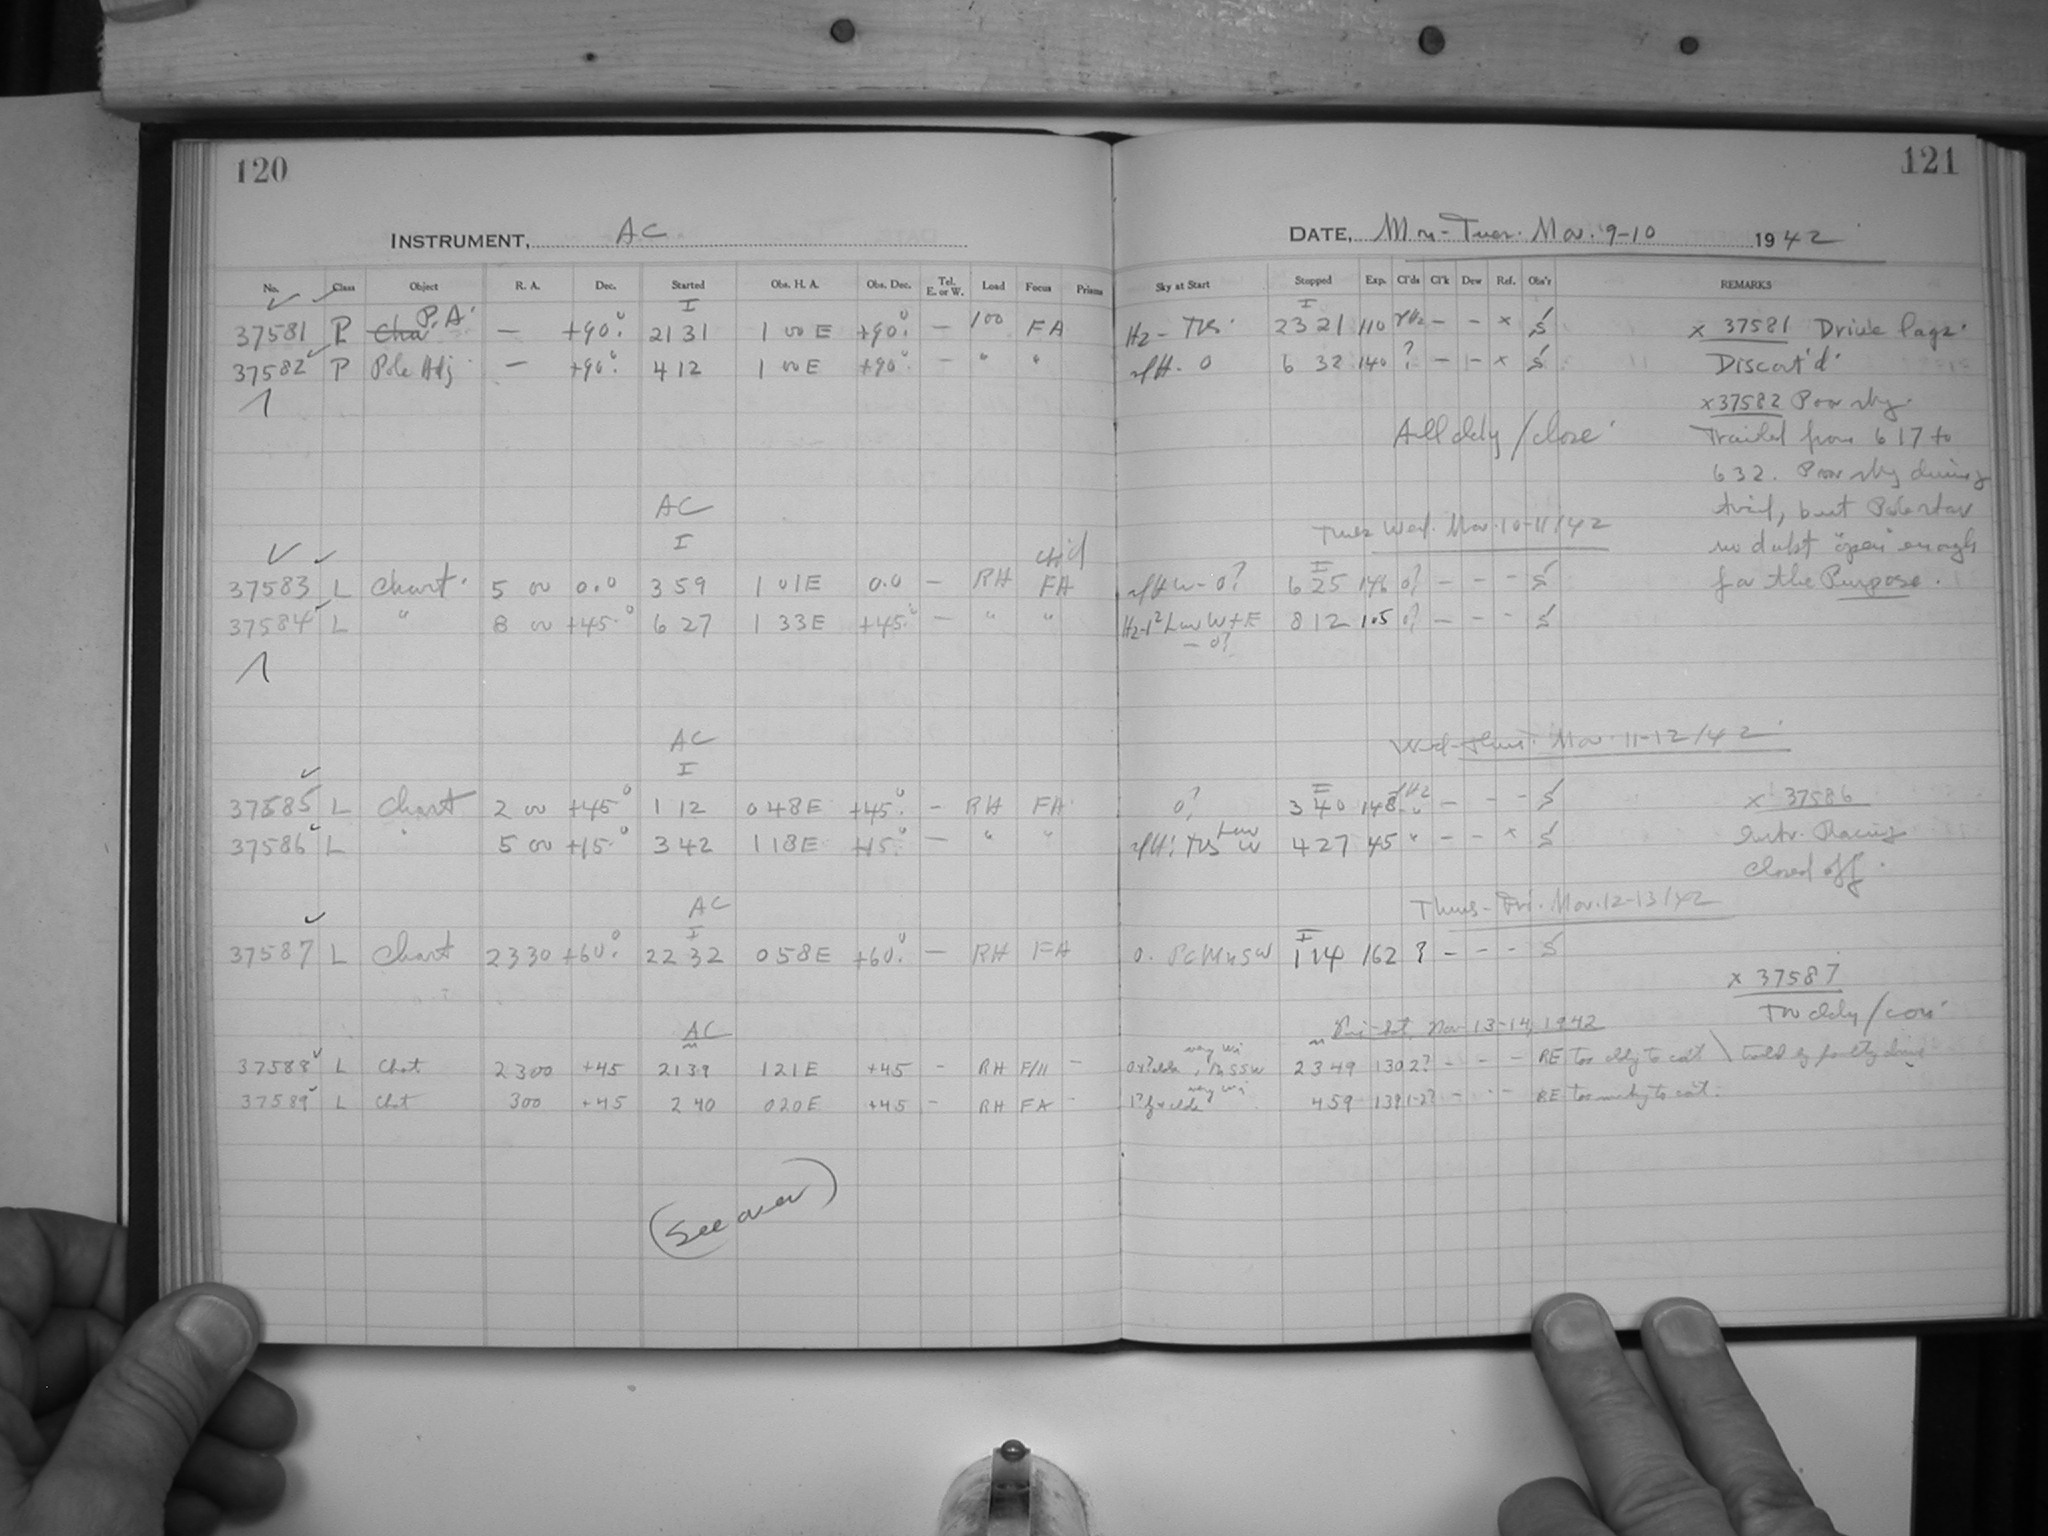 120
121
INSTRUMENT, AC
DATE, Mon-Tues. Mar. 9-10 1942
No. Class Object R. A. Dec. Started Obs. H. A. Obs. Dec. Tel. E. or W. Load Focus Prisms Sky at Start Stopped Exp. Cl'ds Cl'k Dew Ref. Obs'r REMARKS
I I
37581 P Cha P.A. — +90° 21 31 1 00 E +90° — 100 FA Hz - 23 21 110 — — x S x 37581 Drive Lags.
37582 P Pole Adj — +90° 4 12 1 00 E +90° — " " 0 6 32 140 ? — — x S Discont'd.
x 37582 Poor sky.
All cldy / close Trailed from 6 17 to
6 32. Poor sky during
AC Tues Wed. Mar. 10-11/42 trail, but Pole star
I no doubt "open" enough
37583 L Chart. 5 00 0.0 3 59 1 01 E 0.0 — RH FA 0? 6 25 146 0? — — - S for the Purpose.
37584 L " 8 00 +45° 6 27 1 33 E +45° — " " W + E 8 12 105 0? — — - S
— 0?
AC Wed-Thurs. Mar. 11-12/42
I I
37585 L Chart 2 00 +45° 1 12 0 48 E +45° — RH FA 0? 3 40 148 — — - S x 37586
37586 L " 5 00 +15° 3 42 1 18 E +15° — " " W 4 27 45 " — — x S
Closed off.
AC Thurs-Fri. Mar. 12-13/42
I I
37587 L Chart 23 30 +60° 22 32 0 58 E +60° — RH FA 0. 1 14 162 ? — — - S
x 37587
AC Fri-Sat, Mar 13-14, 1942 Too cldy / con
37588 L Chat 23 00 +45 21 39 1 21 E +45 - RH FA - 23 49 130 2? - - - BE too cldy to con't
37589 L Chat 3 00 +45 2 40 0 20 E +45 - RH FA - 4 59 139 1-2? - - - BE too to con't.
(See over)